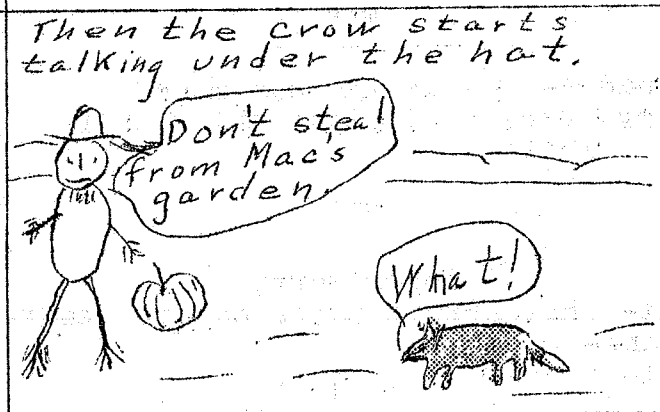 Then the crow starts
talking under the hat.
Don't steal
from Mac's
garden.
What!